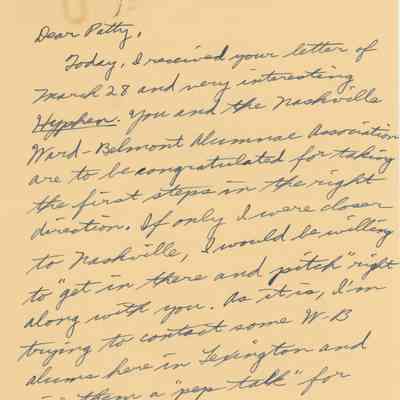 Dear Patty,
Today, I received your letter of
March 28 and very interesting
Hyphen. You and the Nashville
Ward-Belmont Alumnae Association
are to be congratulated for taking
the first steps in the right
direction. If only I were closer
to Nashville, I would be willing
to "get in there and pitch" right
along with you. As it is, I'm
trying to contact some W-B
alums here in Lexington and
them a "pep talk" for